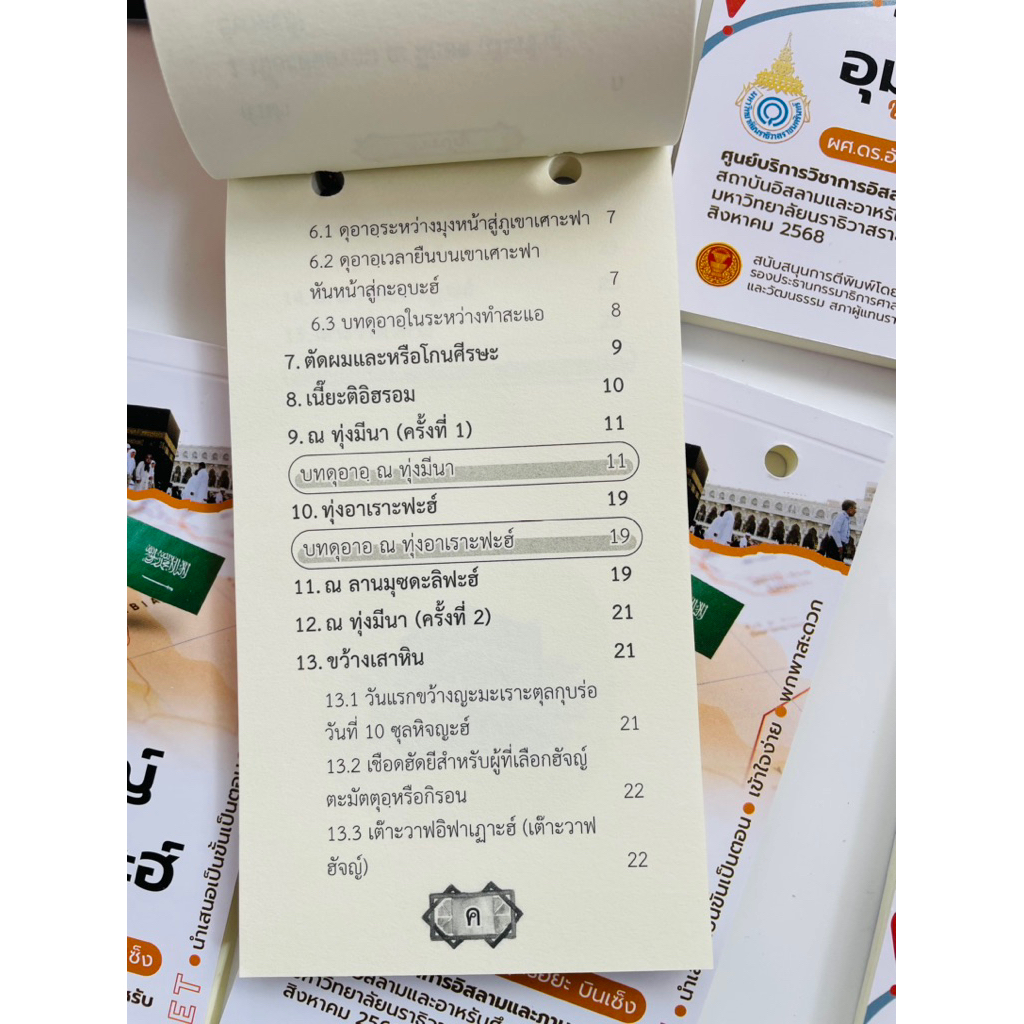 6.1 ดุอาอฺระหว่างมุงหน้าสู่ภูเขาเศาะฟา 7
6.2 ดุอาอฺเวลายืนบนเขาเศาะฟา
หันหน้าสู่กะอฺบะฮ์ 7
6.3 บทดุอาอฺในระหว่างทำสะแอ 8
7. ตัดผมและหรือโกนศีรษะ 9
8. เนี๊ยะติอิฮรอม 10
9. ณ ทุ่งมีนา (ครั้งที่ 1) 11
บทดุอาอฺ ณ ทุ่งมีนา 11
10. ทุ่งอาเราะฟะฮ์ 19
บทดุอาอ ณ ทุ่งอาเราะฟะฮ์ 19
11. ณ ลานมุซดะลิฟะฮ์ 19
12. ณ ทุ่งมีนา (ครั้งที่ 2) 21
13. ขว้างเสาหิน 21
13.1 วันแรกขว้างญะมะเราะตุลกุบร่อ
วันที่ 10 ซุลหิจญะฮ์ 21
13.2 เชือดฮัดยีสำหรับผู้ที่เลือกฮัจญ์
ตะมัตตุอฺหรือกิรอน 22
13.3 เต๊าะวาฟอิฟาเฏาะฮ์ (เต๊าะวาฟ
ฮัจญ์) 22
ค
ผศ.ดร.
ศูนย์บริการวิชาการอิสลาม
สถาบันอิสลามและอาหรับ
มหาวิทยาลัยนราธิวาสรา
สิงหาคม 2568
สนับสนุนการตีพิมพ์โดย
รองประธานกรรมาธิการศาส
และวัฒนธรรม สภาผู้แทนรา
นำเสนอเป็นขั้นเป็นตอน
ET
เซ็ง
หรับ
นขั้นเป็นตอน • เข้าใจง่าย • พกพาสะดวก
นำเส
บินเซ็ง
การอิสลามและภา
สิงหาคม 256